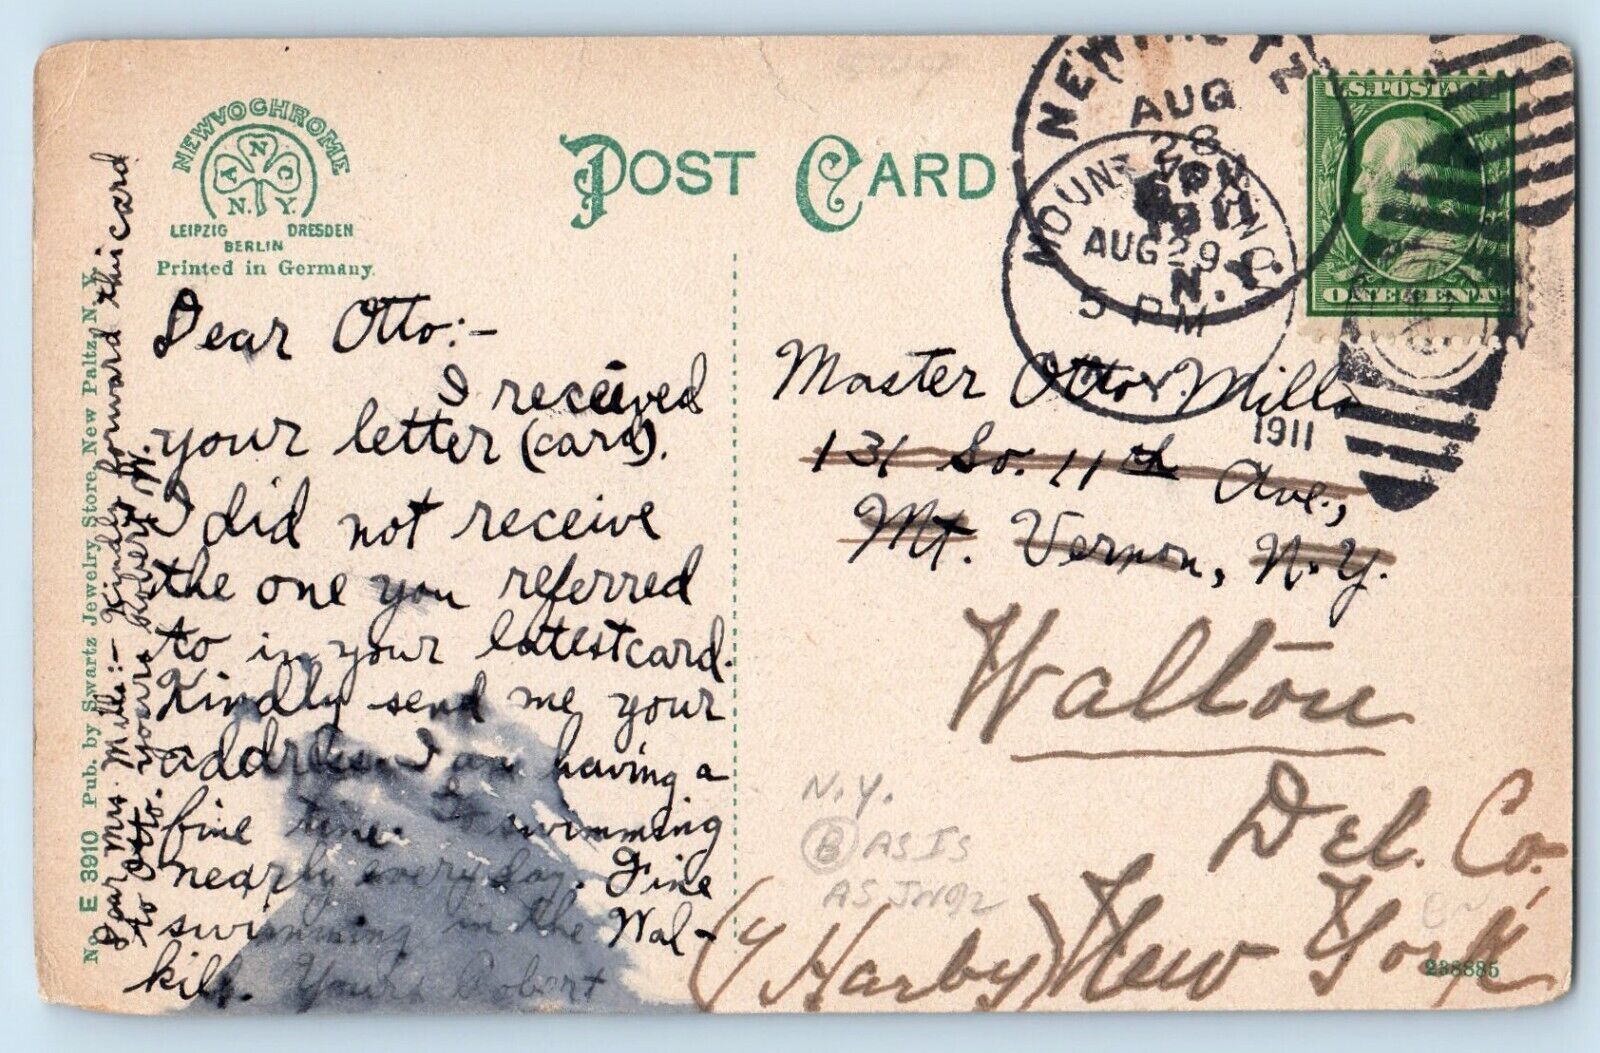 NEWVOCHROME
N
Y C
N. Y.
LEIPZIG DRESDEN
BERLIN
Printed in Germany.
POST CARD
AUG
28
1911
N.Y.
AUG 29
5 PM
1911
U.S. POSTAGE
ONE CENT
Dear Otto:-
I received
your letter (card).
I did not receive
the one you referred
to in your latest card.
Kindly send me your
address. I am having a
fine time. Go swimming
nearly every day. Fine
swimming in the Wal-
kill. Yours Robert
Dear Mrs. Mills:- Kindly forward this card
to Otto. Yours Robert W.
No. E 3910 Pub. by Swartz Jewelry Store, New Paltz, N. Y.
Master Otto Mills
131 So. 11th Ave.,
Mt. Vernon, N.Y.
Walton
Del. Co.
New York
N.Y.
B AS IS
238885